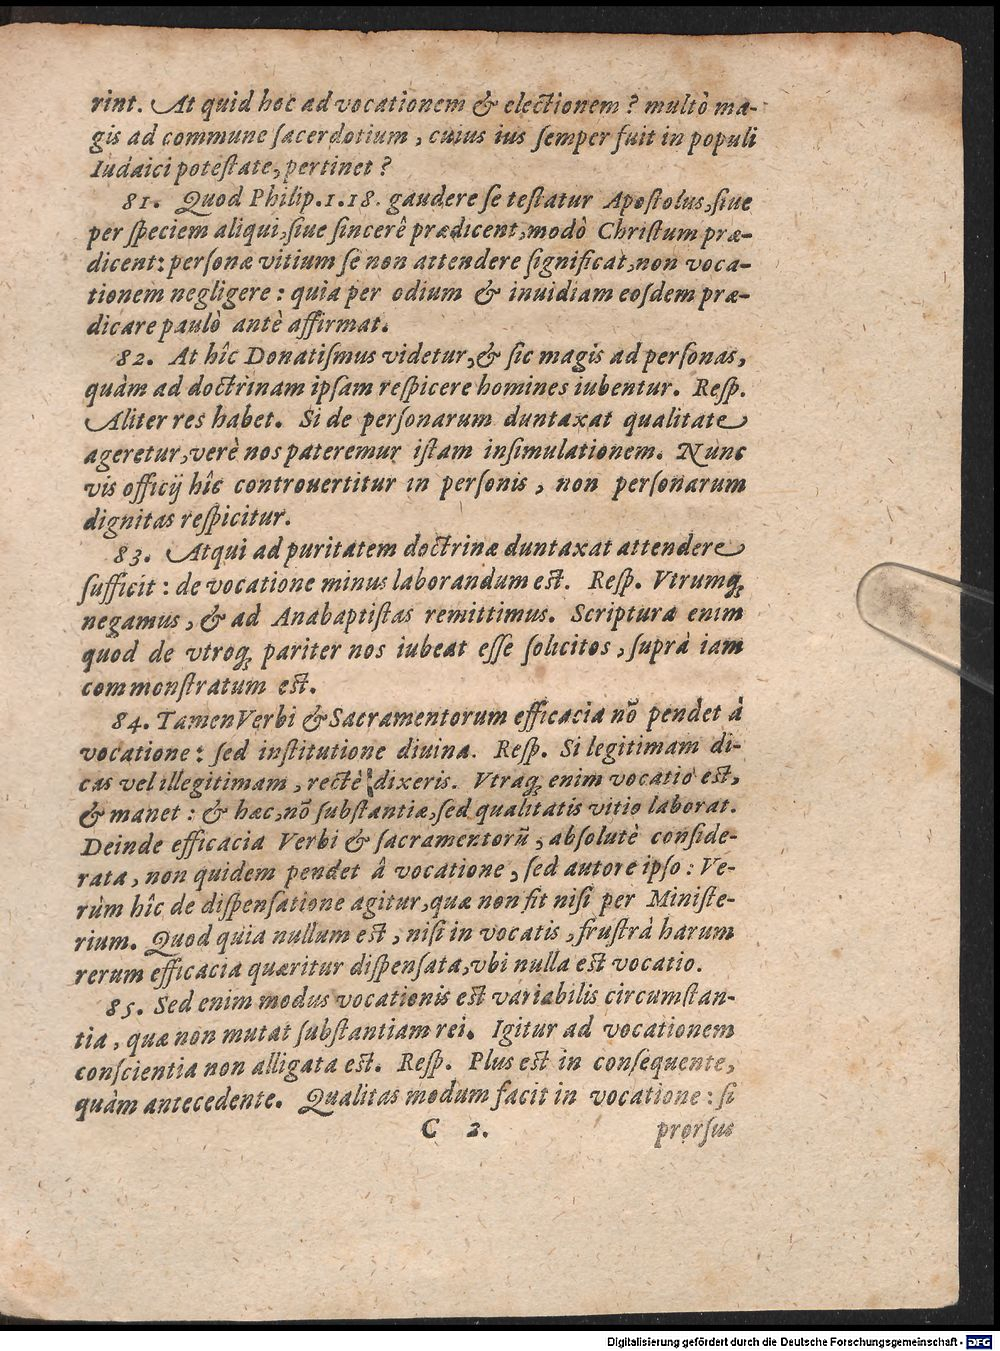 rint. At quid hoc ad vocationem & electionem? multò ma-
gis ad commune ſacerdotium, cuius ius ſemper fuit in populi
Iudaici poteſtate, pertinet?
81. Quod Philip. 1. 18. gaudere ſe teſtatur Apoſtolus, ſiue
per ſpeciem aliqui, ſiue ſincerê prædicent, modò Chriſtum præ-
dicent: perſonæ vitium ſe non attendere ſignificat, non voca-
tionem negligere: quia per odium & inuidiam eoſdem præ-
dicare paulò antè affirmat.
82. At hîc Donatiſmus videtur, & ſic magis ad perſonas,
quàm ad doctrinam ipſam reſpicere homines iubentur. Reſp.
Aliter res habet. Si de perſonarum duntaxat qualitate
ageretur, verè nos pateremur iſtam inſimulationem. Nunc
vis officij hîc controuertitur in perſonis, non perſonarum
dignitas reſpicitur.
83. Atqui ad puritatem doctrinæ duntaxat attendere
ſufficit: de vocatione minus laborandum eſt. Reſp. Vtrumq;
negamus, & ad Anabaptiſtas remittimus. Scriptura enim
quod de vtroq; pariter nos iubeat eſſe ſolicitos, ſuprà iam
commonſtratum eſt.
84. Tamen Verbi & Sacramentorum efficacia nõ pendet à
vocatione: ſed inſtitutione diuina. Reſp. Si legitimam di-
cas vel illegitimam, rectè dixeris. Vtraq; enim vocatio eſt,
& manet: & hæc, nõ ſubſtantiæ, ſed qualitatis vitio laborat.
Deinde efficacia Verbi & ſacramentorũ, abſolutè conſide-
rata, non quidem pendet â vocatione, ſed autore ipſo: Ve-
rùm hîc de diſpenſatione agitur, quæ non fit niſi per Miniſte-
rium. Quod quia nullum eſt, niſi in vocatis, fruſtrà harum
rerum efficacia quæritur diſpenſata, vbi nulla eſt vocatio.
85. Sed enim modus vocationis eſt variabilis circumſtan-
tia, quæ non mutat ſubſtantiam rei. Igitur ad vocationem
conſcientia non alligata eſt. Reſp. Plus eſt in conſequente,
quàm antecedente. Qualitas modum facit in vocatione: ſi
C 2. prorſus
Digitalisierung gefördert durch die Deutsche Forschungsgemeinschaft - DFG